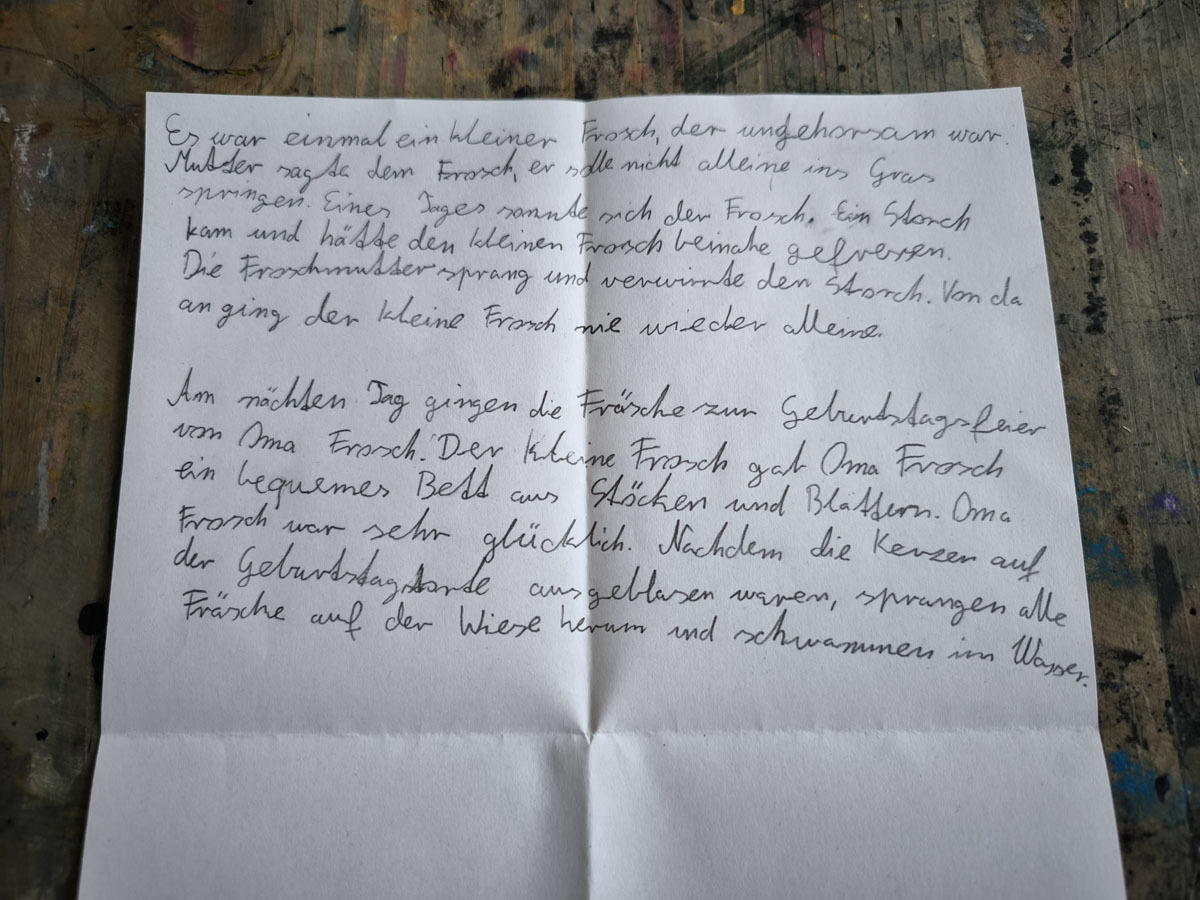 Es war einmal ein kleiner Frosch, der ungehorsam war.
Mutter sagte dem Frosch, er solle nicht alleine ins Gras
springen. Eines Tages sonnte sich der Frosch. Ein Storch
kam und hätte den kleinen Frosch beinahe gefressen.
Die Froschmutter sprang und verwirrte den Storch. Von da
an ging der kleine Frosch nie wieder alleine.
Am nächten Tag gingen die Frösche zur Geburtstagsfeier
von Oma Frosch. Der kleine Frosch gab Oma Frosch
ein bequemes Bett aus Stöcken und Blättern. Oma
Frosch war sehr glücklich. Nachdem die Kerzen auf
der Geburtstagstorte ausgeblasen waren, sprangen alle
Frösche auf der Wiese herum und schwammen im Wasser.